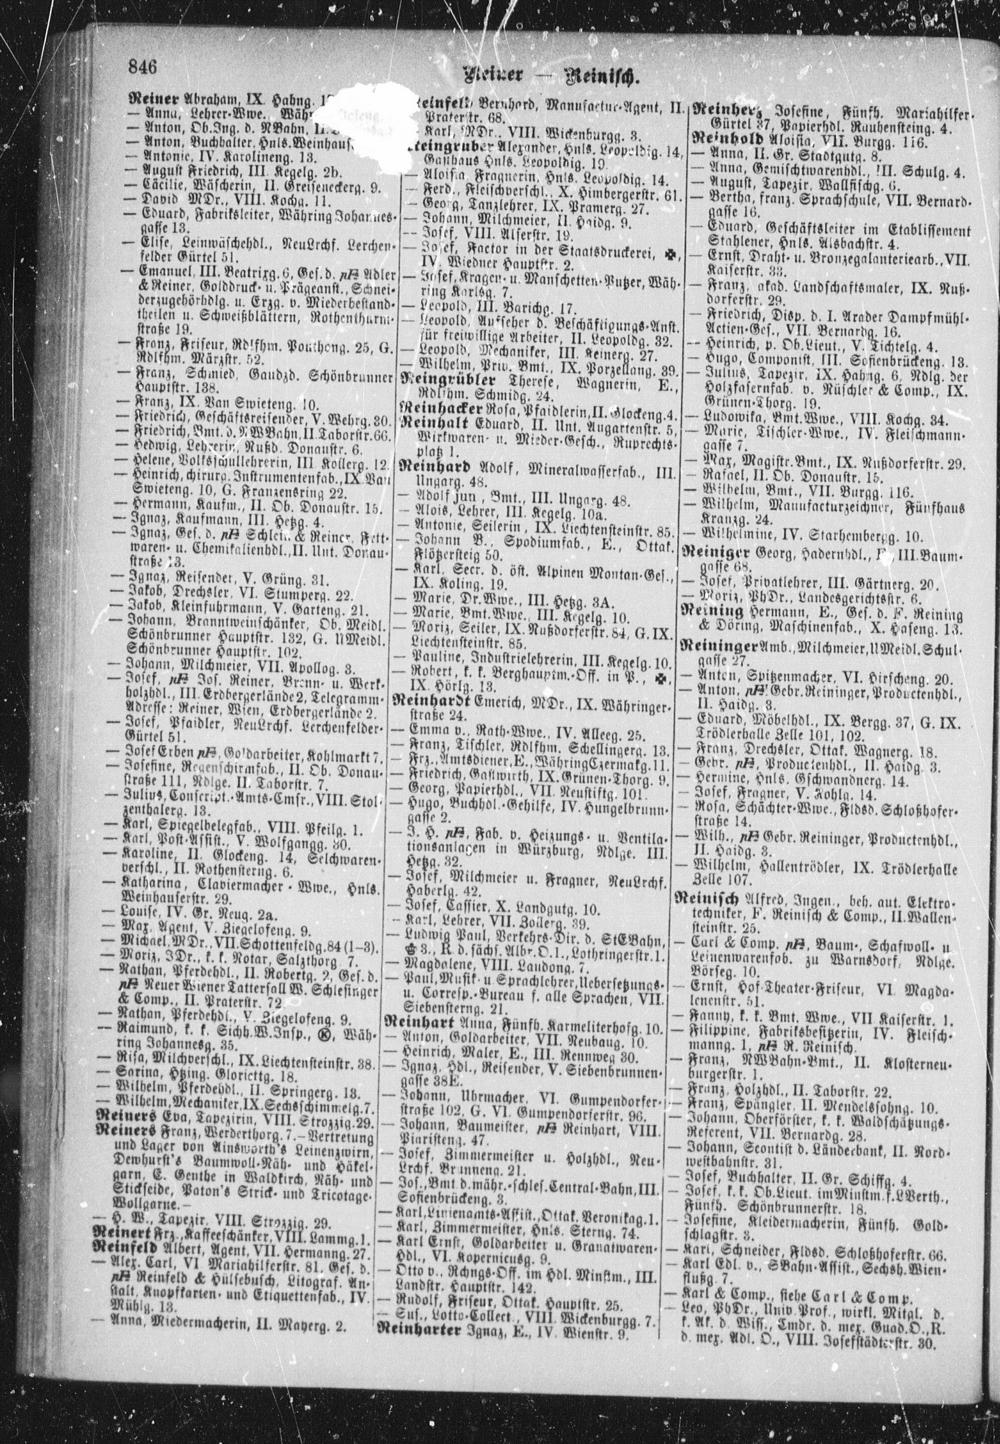 846
Reiner — Reinisch.
Reiner Abraham, IX. Hahng.
— Anna, Lehrer-Wwe.
— Anton, Ob.Ing. d. NBahn, II.
— Anton, Buchhalter, Hnls. Weinhaus
— Antonie, IV. Karolineng. 13.
— August Friedrich, III. Kegelg. 2b.
— Cäcilie, Wäscherin, II. Greiseneckerg. 9.
— David MDr., VIII. Kochg. 11.
— Eduard, Fabriksleiter, Währing Johannes-
gasse 13.
— Elise, Leinwäschehdl., NeuLrchf. Lerchen-
felder Gürtel 51.
— Emanuel, III. Beatrixg. 6, Ges. d. Adler
& Reiner, Golddruck- u. Prägeanst., Schnei-
derzugehörhdlg. u. Erzg. v. Miederbestand-
theilen u. Schweißblättern, Rothenthurm-
straße 19.
— Franz, Friseur, Rdlfhm. Pouthong. 25, G.
Rdlfhm. Märzstr. 52.
— Franz, Schmied, Gaudzd. Schönbrunner
Hauptstr. 138.
— Franz, IX. Van Swieteng. 10.
— Friedrich, Geschäftsreisender, V. Wehrg. 30.
— Friedrich, Bmt. d. NWBahn, II. Taborstr. 66.
— Hedwig, Lehrerin, Nußd. Donaustr. 6.
— Helene, Volksschullehrerin, III Kollerg. 12.
— Heinrich, chirurg. Instrumentenfab., IX. Van
Swieteng. 10, G. Franzensring 22.
— Hermann, Kaufm., II. Ob. Donaustr. 15.
— Ignaz, Kaufmann, III. Hetzg. 4.
— Ignaz, Ges. d. Schlein & Reiner, Fett-
waren- u. Chemikalienhdl., II. Unt. Donau-
straße 13.
— Ignaz, Reisender, V. Grüng. 31.
— Jakob, Drechsler, VI. Stumperg. 22.
— Jakob, Kleinfuhrmann, V. Garteng. 21.
— Johann, Branntweinschänker, Ob. Meidl.
Schönbrunner Hauptstr. 132, G. UMeidl.
Schönbrunner Hauptstr. 102.
— Johann, Milchmeier, VII. Apollog. 3.
— Josef, Jos. Reiner, Brenn- u. Werk-
holzhdl., III. Erdbergerlände 2, Telegramm-
Adresse: Reiner, Wien, Erdbergerlände 2.
— Josef, Pfaidler, NeuLrchf. Lerchenfelder-
Gürtel 51.
— Josef Erben, Goldarbeiter, Kohlmarkt 7.
— Josefine, Regenschirmfab., II. Ob. Donau-
straße 111, Ndlge. II. Taborstr. 7.
— Julius, Conscript.-Amts-Cmsr., VIII. Stol-
zenthalerg. 13.
— Karl, Spiegelbelegfab., VIII. Pfeilg. 1.
— Karl, Post-Assist., V. Wolfgangg. 30.
— Karoline, II. Glockeng. 14, Selchwaren-
verschl., II. Rothensterng. 6.
— Katharina, Claviermacher-Wwe., Hnls.
Weinhauserstr. 29.
— Louise, IV. Gr. Neug. 2a.
— Max, Agent, V. Ziegelofeng. 9.
— Michael, MDr., VII. Schottenfeldg. 84 (1–3).
— Moriz, JDr., k. k. Notar, Salzthorg. 7.
— Nathan, Pferdehdl., II. Robertg. 2, Ges. d.
Neuer Wiener Tattersall W. Schlesinger
& Comp., II. Praterstr. 72.
— Nathan, Pferdehdl., V. Ziegelofeng. 9.
— Raimund, k. k. Sichh.W.Insp., Wäh-
ring Johannesg. 35.
— Risa, Milchverschl., IX. Liechtensteinstr. 38.
— Sarina, Htzing. Gloriettg. 18.
— Wilhelm, Pferdehdl., II. Springerg. 13.
— Wilhelm, Mechaniker, IX. Sechsschimmelg. 7.
Reiners Eva, Tapezirin, VIII. Strozzig. 29.
Reiners Franz, Werderthorg. 7.—Vertretung
und Lager von Ainsworth's Leinenzwirn,
Dewhurst's Baumwoll-Näh- und Häkel-
garn, C. Genthe in Waldkirch, Näh- und
Stickseide, Paton's Strick- und Tricotage-
Wollgarne.—
— H. W., Tapezir, VIII. Strozzig. 29.
Reinert Frz., Kaffeeschänker, VIII. Lammg. 1.
Reinfeld Albert, Agent, VII. Hermanng. 27.
— Alex. Carl, VI Mariahilferstr. 81. Ges. d.
Reinfeld & Hülsebusch, Litograf. An-
stalt, Knopfkarten- und Etiquettenfab., IV.
Mühlg. 13.
— Anna, Miedermacherin, II. Mayerg. 2.
Reinfeld Bernhard, Manufactur-Agent, II.
Praterstr. 68.
— Karl, MDr., VIII. Wickenburgg. 3.
Reingruber Alexander, Hnls. Leopoldig. 14,
Gasthaus Hnls. Leopoldig. 19.
— Aloisia, Fragnerin, Hnls. Leopoldig. 14.
— Ferd., Fleischverschl., X. Himbergerstr. 61.
— Georg, Tanzlehrer, IX. Pramerg. 27.
— Johann, Milchmeier, II. Haidg. 9.
— Josef, VIII. Alserstr. 19.
— Josef, Factor in der Staatsdruckerei, ✠,
IV. Wiedner Hauptstr. 2.
— Josef, Kragen- u. Manschetten-Putzer, Wäh-
ring Karlsg. 7.
— Leopold, III. Barichg. 17.
— Leopold, Aufseher d. Beschäftigungs-Anst.
für freiwillige Arbeiter, II. Leopoldg. 32.
— Leopold, Mechaniker, III. Keinerg. 27.
— Wilhelm, Priv. Bmt., IX. Porzellang. 39.
Reingrübler Therese, Wagnerin, E.,
Rdlfhm. Schmidg. 24.
Reinhacker Rosa, Pfaidlerin, II. Glockeng. 4.
Reinhalt Eduard, II. Unt. Augartenstr. 5,
Wirkwaren- u. Mieder-Gesch., Ruprechts-
platz 1.
Reinhard Adolf, Mineralwasserfab., III.
Ungarg. 48.
— Adolf jun., Bmt., III. Ungarg. 48.
— Alois, Lehrer, III. Kegelg. 10a.
— Antonie, Seilerin, IX. Liechtensteinstr. 85.
— Johann B., Spodiumfab., E., Ottak.
Flötzersteig 50.
— Karl, Secr. d. öst. Alpinen Montan-Ges.,
IX. Koling. 19.
— Marie, Dr.Wwe., III. Hetzg. 3A.
— Marie, Bmt.Wwe., III. Kegelg. 10.
— Moriz, Seiler, IX. Nußdorferstr. 84, G. IX.
Liechtensteinstr. 85.
— Pauline, Industrielehrerin, III. Kegelg. 10.
— Robert, k. k. Berghauptm.-Off. in P., ✠,
IX. Hörlg. 13.
Reinhardt Emerich, MDr., IX. Währinger-
straße 24.
— Emma v., Rath-Wwe., IV. Alleeg. 25.
— Franz, Tischler, Rdlfhm. Schellingerg. 13.
— Frz., Amtsdiener, E., Währing Czermakg. 11.
— Friedrich, Gastwirth, IX. Grünen-Thorg. 9.
— Georg, Papierhdl., VII. Neustiftg. 101.
— Hugo, Buchhdl.-Gehilfe, IV. Hungelbrunn-
gasse 2.
— J. H., Fab. v. Heizungs- u. Ventila-
tionsanlagen in Würzburg, Ndlge. III.
Hetzg. 32.
— Josef, Milchmeier u. Fragner, NeuLrchf.
Haberlg. 42.
— Josef, Cassier, X. Landgutg. 10.
— Karl, Lehrer, VII. Zollerg. 39.
— Ludwig Paul, Verkehrs-Dir. d. StEBahn,
3., R. d. sächs. Albr. O. 1., Lothringerstr. 1.
— Magdalene, VIII. Laudong. 7.
— Paul, Musik- u. Sprachlehrer, Uebersetzungs-
u. Corresp.-Bureau f. alle Sprachen, VII.
Siebensterng. 21.
Reinhart Anna, Fünfh. Karmeliterhofg. 10.
— Anton, Goldarbeiter, VII. Neubaug. 10.
— Heinrich, Maler, E., III. Rennweg 30.
— Ignaz, Hdl., Reisender, V. Siebenbrunnen-
gasse 38E.
— Johann, Uhrmacher, VI. Gumpendorfer-
straße 102, G. VI. Gumpendorferstr. 96.
— Johann, Baumeister, Reinhart, VIII.
Piaristeng. 47.
— Josef, Zimmermeister u. Holzhdl., Neu-
Lrchf. Brunneng. 21.
— Jos., Bmt. d. mähr.-schles. Central-Bahn, III.
Sofienbrückeng. 3.
— Karl, Linienamts-Assist., Ottak. Veronikag. 1.
— Karl, Zimmermeister, Hnls. Sterng. 74.
— Karl Ernst, Goldarbeiter u. Granatwaren-
Hdl., VI. Kopernicusg. 9.
— Otto v., Rchngs-Off. im Hdl. Minstm., III.
Landstr. Hauptstr. 142.
— Rudolf, Friseur, Ottak. Hauptstr. 25.
— Sus., Lotto-Collect., VIII. Wickenburgg. 7.
Reinharter Ignaz, E., IV. Wienstr. 9.
Reinherz Josefine, Fünfh. Mariahilfer-
Gürtel 37, Papierhdl. Rauhensteing. 4.
Reinhold Aloisia, VII. Burgg. 116.
— Anna, II. Gr. Stadtgutg. 8.
— Anna, Gemischtwarenhdl., III. Schulg. 4.
— August, Tapezir, Wallfischg. 6.
— Bertha, franz. Sprachschule, VII. Bernard-
gasse 16.
— Eduard, Geschäftsleiter im Etablissement
Stahlener, Hnls. Alsbachstr. 4.
— Ernst, Draht- u. Bronzegalanteriearb., VII.
Kaiserstr. 33.
— Franz, akad. Landschaftsmaler, IX. Nuß-
dorferstr. 29.
— Friedrich, Disp. d. I. Arader Dampfmühl-
Actien-Ges., VII. Bernardg. 16.
— Heinrich, p. Ob.Lieut., V. Tichtelg. 4.
— Hugo, Componist, III. Sofienbrückeng. 13.
— Julius, Tapezir, IX. Hahng. 6, Ndlg. der
Holzfasernfab. v. Rüschler & Comp., IX.
Grünen-Thorg. 19.
— Ludowika, Bmt.Wwe., VIII. Kochg. 34.
— Marie, Tischler-Wwe., IV. Fleischmann-
gasse 7.
— Max, Magistr.Bmt., IX. Nußdorferstr. 29.
— Rafael, II. Ob. Donaustr. 15.
— Wilhelm, Bmt., VII. Burgg. 116.
— Wilhelm, Manufacturzeichner, Fünfhaus
Kranzg. 24.
— Wilhelmine, IV. Starhembergg. 10.
Reiniger Georg, Hadernhdl., III. Baum-
gasse 68.
— Josef, Privatlehrer, III. Gärtnerg. 20.
— Moriz, PhDr., Landesgerichtsstr. 6.
Reining Hermann, E., Ges. d. F. Reining
& Döring, Maschinenfab., X. Haseng. 13.
Reininger Amb., Milchmeier, UMeidl. Schul-
gasse 27.
— Anton, Spitzenmacher, VI. Hirscheng. 20.
— Anton, Gebr. Reininger, Productenhdl.,
II. Haidg. 3.
— Eduard, Möbelhdl., IX. Bergg. 37, G. IX.
Trödlerhalle Zelle 101, 102.
— Franz, Drechsler, Ottak. Wagnerg. 18.
— Gebr., Productenhdl., II. Haidg. 3.
— Hermine, Hnls. Gschwandnerg. 14.
— Josef, Fragner, V. Kohlg. 14.
— Rosa, Schächter-Wwe., Fldsd. Schloßhofer-
straße 14.
— Wilh., Gebr. Reininger, Productenhdl.,
II. Haidg. 3.
— Wilhelm, Hallentrödler, IX. Trödlerhalle
Zelle 107.
Reinisch Alfred, Ingen., beh. aut. Elektro-
techniker, F. Reinisch & Comp., II. Wallen-
steinstr. 25.
— Carl & Comp., Baum-, Schafwoll- u.
Leinenwarenfab. zu Warnsdorf, Ndlge.
Börseg. 10.
— Ernst, Hof-Theater-Friseur, VI Magda-
lenenstr. 51.
— Fanny, k. k. Bmt. Wwe., VII Kaiserstr. 1.
— Filippine, Fabriksbesitzerin, IV. Fleisch-
manng. 1, R. Reinisch.
— Franz, NWBahn-Bmt., II. Klosterneu-
burgerstr. 1.
— Franz, Holzhdl., II. Taborstr. 22.
— Franz, Spängler, II. Mendelsohng. 10.
— Johann, Oberförster, k. k. Waldschätzungs-
Referent, VII. Bernardg. 28.
— Johann, Scontist d. Länderbank, II. Nord-
westbahnstr. 31.
— Josef, Buchhalter, II. Gr. Schiffg. 4.
— Josef, k. k. Ob.Lieut. im Minstm. f. LVerth.,
Fünfh. Schönbrunnerstr. 18.
— Josefine, Kleidermacherin, Fünfh. Gold-
schlagstr. 3.
— Karl, Schneider, Fldsd. Schloßhoferstr. 66.
— Karl Edl. v., SBahn-Assist., Sechsh. Wien-
flußg. 7.
— Karl & Comp., siehe Carl & Comp.
— Leo, PhDr., Univ.Prof., wirkl. Mitgl. d.
k. Ak. d. Wiss., Cmdr. d. mex. Guad.O., R.
d. mex. Adl. O., VIII. Josefstädterstr. 30.